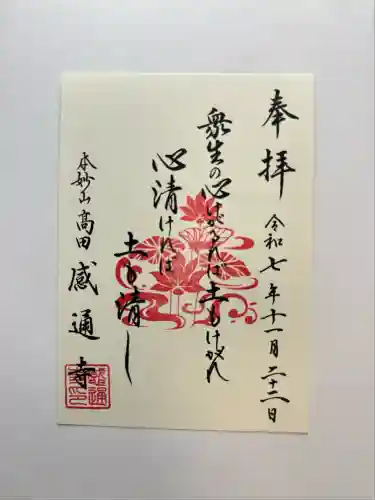 奉拝
令和七年十一月二十二日
衆生の心けがるれば土もけがれ
心清ければ
土も清し
本妙山高田感通寺